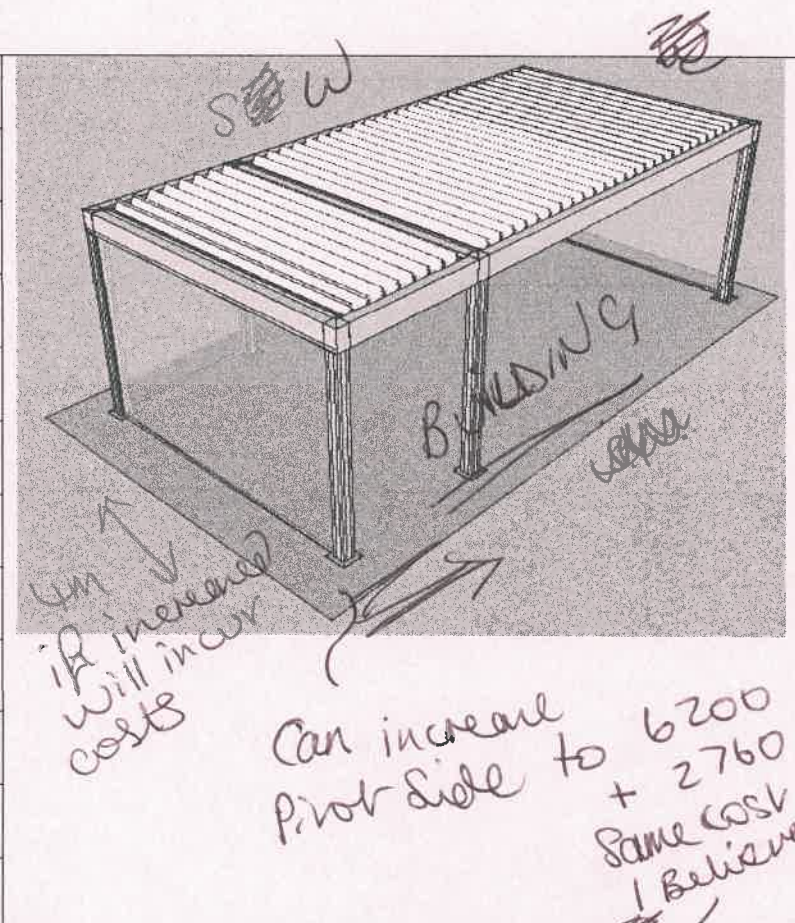 S W
BUILDING
4m
if increased
will incur
costs
Can increase
Pivot Side to 6200
+ 2760
Same cost
I Believe